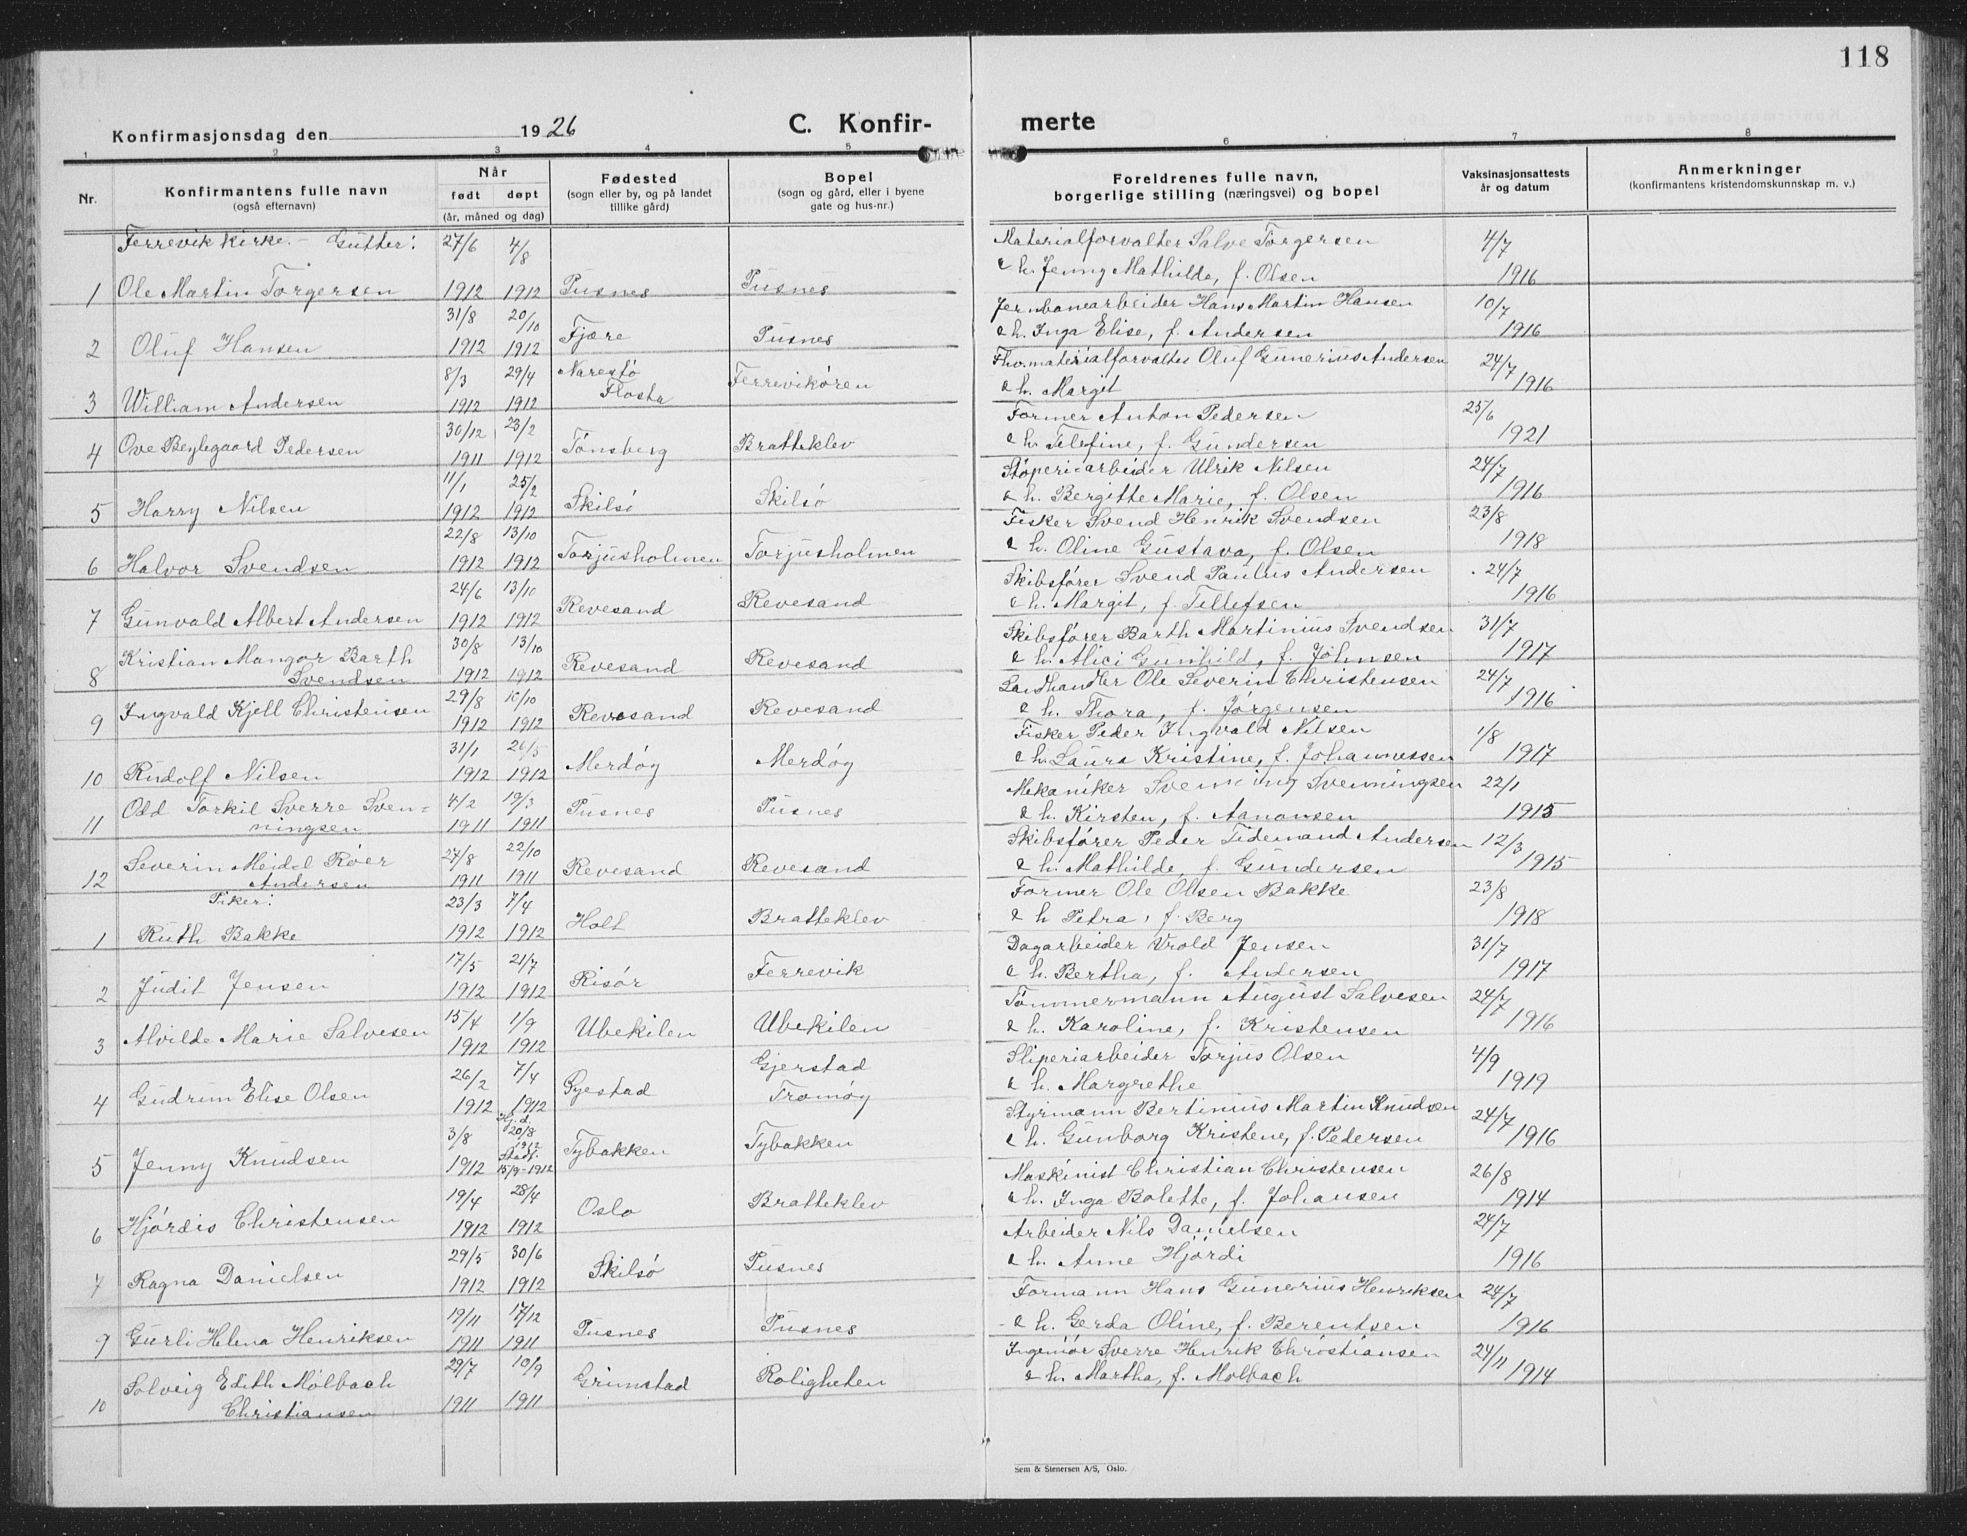 118
Konfirmasjonsdag den 1926 C. Konfir- merte
1 2 3 4 5 6 7 8
Nr. Konfirmantens fulle navn (også efternavn) Når født døpt (år, måned og dag) Fødested (sogn eller by, og på landet tillike gård) Bopel (sogn og gård, eller i byene gate og hus-nr.) Foreldrenes fulle navn, borgerlige stilling (næringsvei) og bopel Vaksinasjonsattests år og datum Anmerkninger (konfirmantens kristendomskunnskap m. v.)
Færevik kirke. - Gutter: 27/6 4/8 Materialforvalter Salve Torgersen 4/7
1 Ole Martin Torgersen 1912 1912 Pusnes Pusnes & h. Jenny Mathilde, f. Olsen 1916
31/8 20/10 Jernbanearbeider Hans Martin Hansen 10/7
2 Oluf Hansen 1912 1912 Fjære Pusnes & h. Inga Elise, f. Andersen 1916
8/3 29/4 Narestø materialforvalter Oluf Gunerius Andersen 24/7
3 William Andersen 1912 1912 Flosta Færevikøren & h. Margit 1916
30/12 23/2 Former Anton Pedersen 25/6
4 Ove Pedersen 1911 1912 Tønsberg Bratteklev & h. Telefine, f. Gundersen 1921
11/1 25/2 Støperiarbeider Ulrik Nilsen 24/7
5 Harry Nilsen 1912 1912 Skilsø Skilsø & h. Bergitte Marie, f. Olsen 1916
22/8 13/10 Fisker Svend Henrik Svendsen 23/8
6 Halvor Svendsen 1912 1912 Torjusholmen Torjusholmen & h. Oline Gustava, f. Olsen 1918
24/6 13/10 Skibsfører Svend Paulus Andersen 24/7
7 Gunvald Albert Andersen 1912 1912 Revesand Revesand & h. Margit, f. Tellefsen 1916
Kristian Mangor Barth 30/8 13/10 Skibsfører Barth Martinius Svendsen 31/7
8 Svendsen 1912 1912 Revesand Revesand & h. Alici Gunhild, f. Johnsen 1917
29/8 /10 Landhandler Ole Severin Christensen 24/7
9 Ingvald Kjell Christensen 1912 1912 Revesand Revesand & h. Thora, f. Jørgensen 1916
31/1 26/5 Fisker Peder Ingvald Nilsen 1/8
10 Rudolf Nilsen 1912 1912 Merdøy Merdøy & h. Laura Kristine, f. Johannessen 1917
Odd Torkil Sverre Sven= 4/2 19/3 Mekaniker Svenning Svenningsen 22/1
11 ningsen 1911 1911 Pusnes Pusnes & h. Kirsten, f. Aanonsen 1915
Severin Meidel Røer 27/8 22/10 Skibsfører Peder Tidemand Andersen 12/3
12 Andersen 1911 1911 Revesand Revesand & h. Mathilde, f. Gundersen 1915
Piker: 23/3 7/4 Former Ole Olsen Bakke 23/8
1 Ruth Bakke 1912 1912 Holt Bratteklev & h. Petra, f. Berg 1918
17/5 21/7 Dagarbeider Vrold Jensen 31/7
2 Judit Jensen 1912 1912 Risør Færevik & h. Bertha, f. Andersen 1917
15/4 1/9 Tømmermann August Salvesen 24/7
3 Alvilde Marie Salvesen 1912 1912 Ubekilen Ubekilen & h. Karoline, f. Kristensen 1916
26/2 7/4 Gjerstad Sliperiarbeider Torjus Olsen 4/9
4 Gudrun Elise Olsen 1912 1912 Tromøy & h. Margrethe 1919
3/8 Hj.d. 20/8 1912 Styrmann Bertinius Martin Knudsen 24/7
5 Jenny Knudsen 1912 Stadf. 15/9-1912 Tybakken Tybakken & h. Gunborg Kristene, f. Pedersen 1916
19/4 28/4 Maskinist Christian Christensen 26/8
6 Hjørdis Christensen 1912 1912 Oslo Bratteklev & h. Inga Bolette, f. Johansen 1914
29/5 30/6 Arbeider Nils Danielsen 24/7
7 Ragna Danielsen 1912 1912 Skilsø Pusnes & h. Anne Hjördi 1916
19/11 17/12 Formann Hans Gunerius Henriksen 24/7
9 Gurli Helena Henriksen 1911 1911 Pusnes Pusnes & h. Gerda Oline, f. Berentsen 1916
Solveig Edith Molbach 29/7 10/9 Ingeniør Sverre Henrik Christiansen 24/11
10 Christiansen 1911 1911 Grimstad Roligheten & h. Martha, f. Molbach 1914
Sem & Stenersen A/S, Oslo.